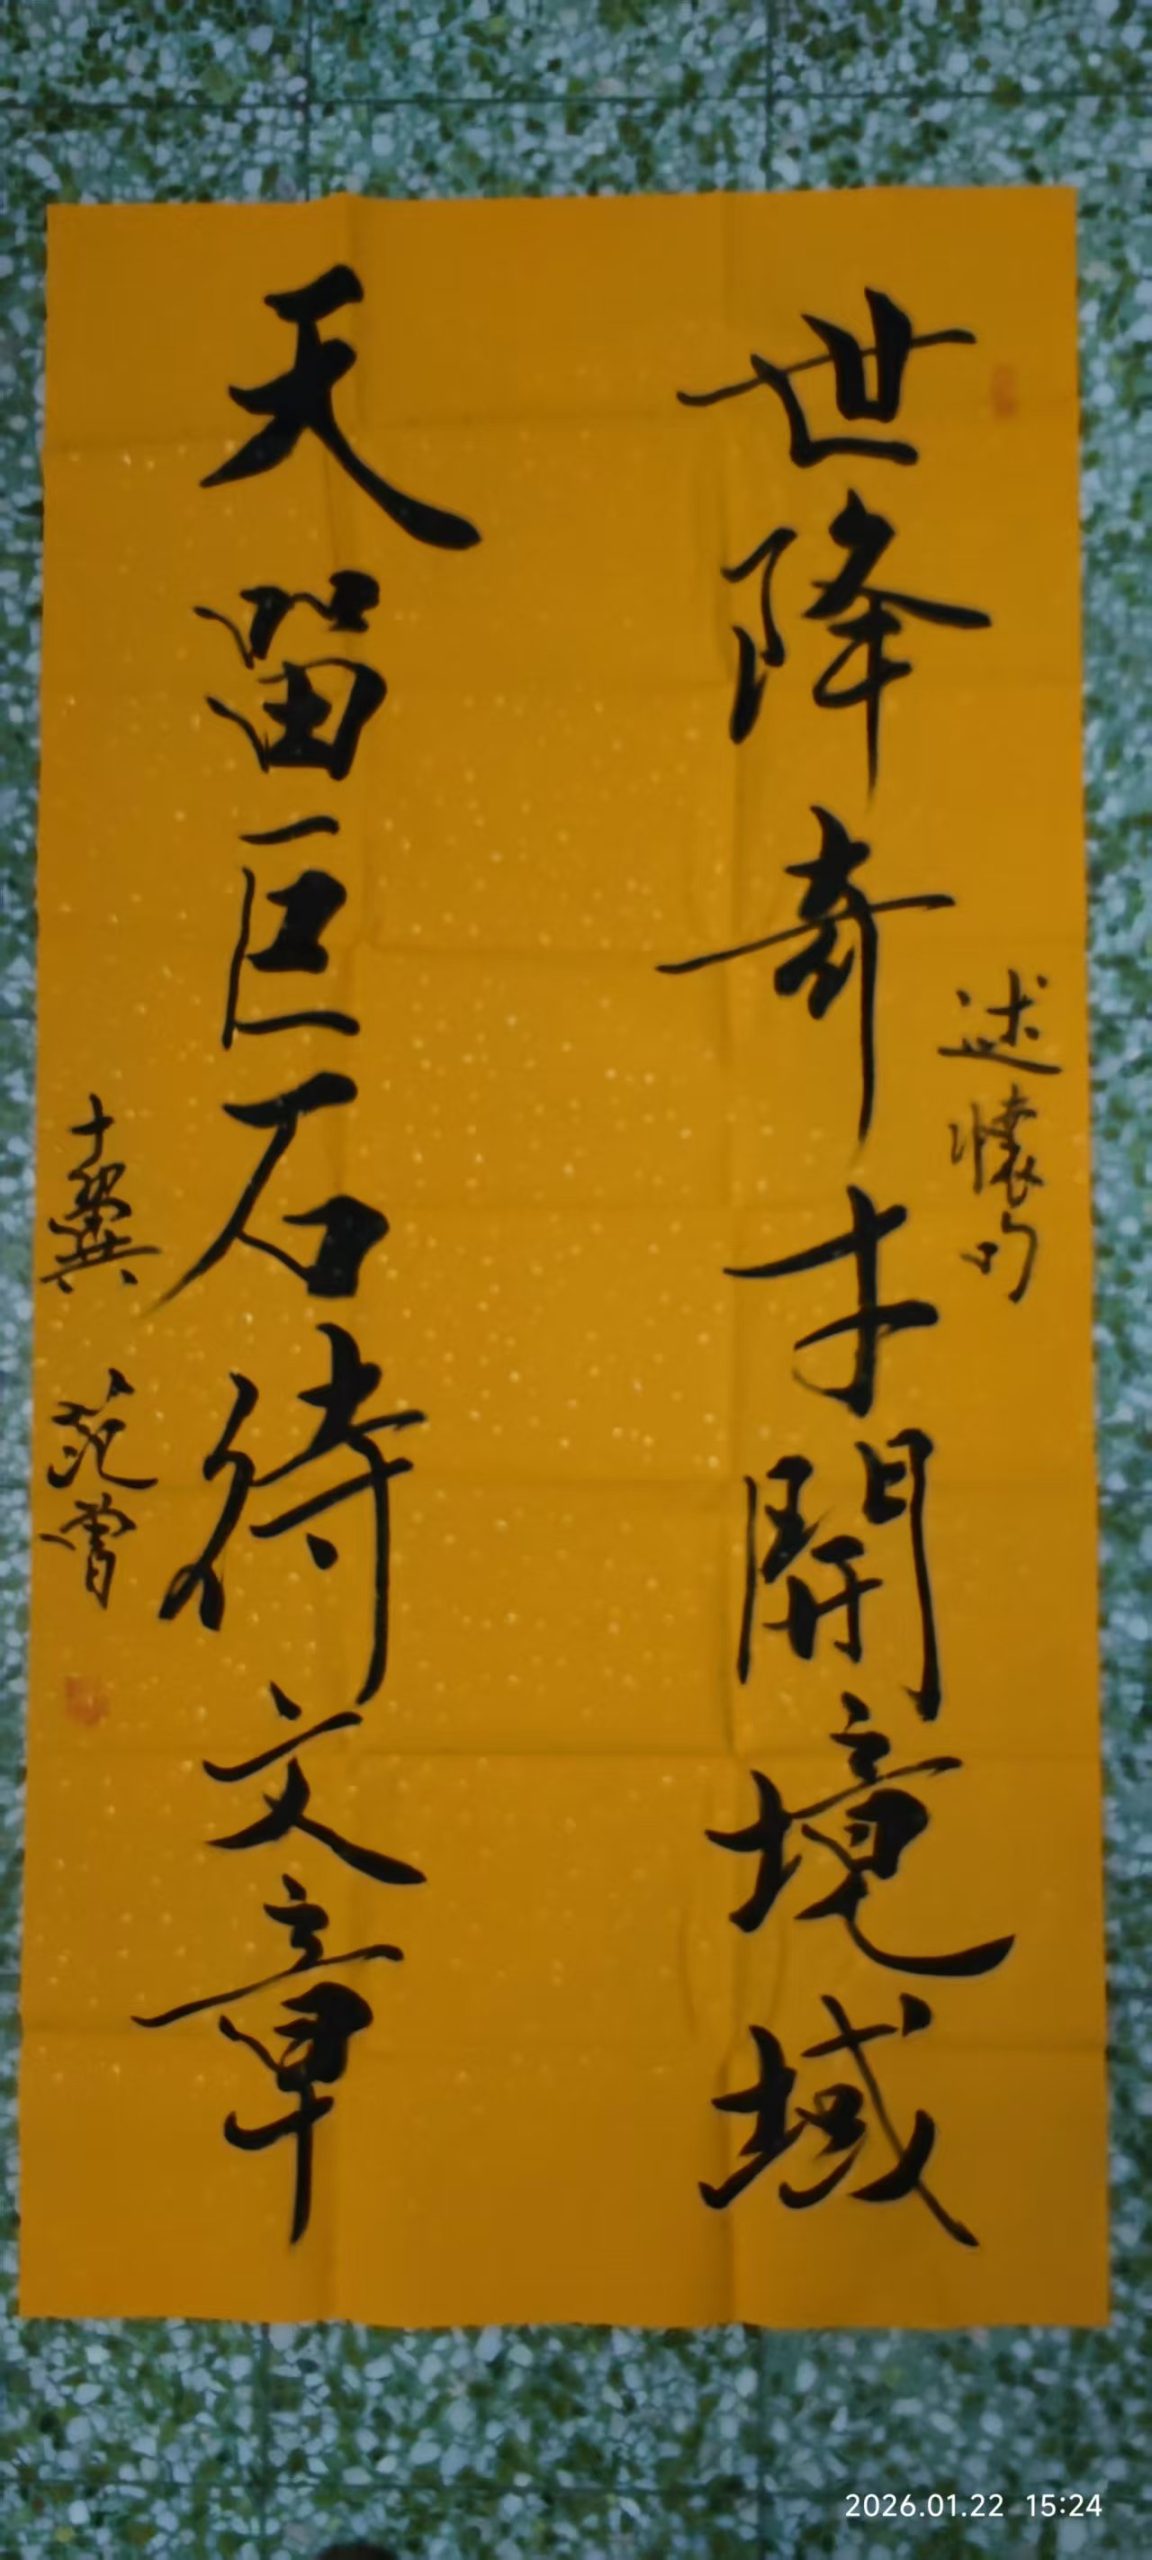 世降奇才開境域
述懷句
天留巨石待文章
十翼 范曾
2026.01.22 15:24